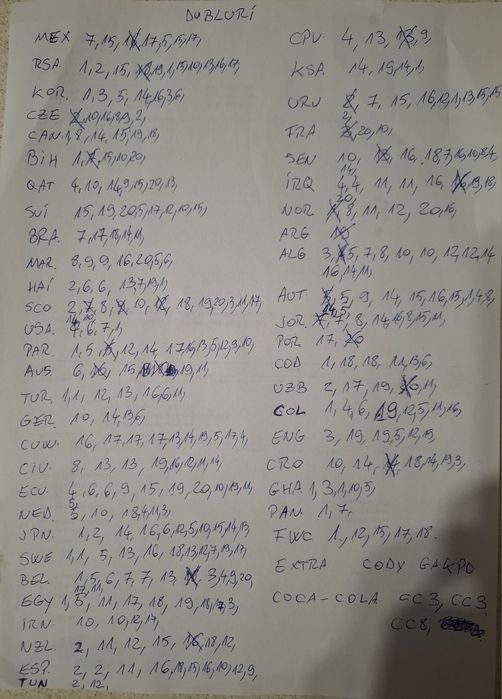 DUBLURI
MEX 7, 15, 17, 5, 15, 17,
RSA. 1, 2, 15, 19, 1, 15, 10, 13, 16, 17,
KOR. 1, 3, 5, 14, 16, 3, 6,
CZE 10, 16, 8, 9, 2,
CAN. 1, 8, 14, 15, 19, 18,
BIH 1, 15, 10, 20,
QAT 4, 10, 14, 9, 15, 20, 13,
SUI 15, 19, 20, 5, 17, 12, 10, 15,
BRA. 7, 17, 18, 14, 11,
MAR. 8, 9, 9, 16, 20, 5, 6,
HAI 2, 6, 6, 13, 7, 19, 1,
SCO 2, 8, 10, 18, 19, 20, 3, 11, 17,
USA. 6, 7, 1,
PAR. 1, 5, 12, 14, 17, 16, 13, 5, 12, 9, 10,
AUS 6, 15, 19, 11,
TUR. 1, 1, 12, 13, 16, 6, 11,
GER 10, 14, 13, 6,
CUW. 16, 17, 17, 17, 13, 14, 19, 5, 17, 4,
CIU. 8, 13, 13, 19, 16, 12, 11, 14,
ECU. 4, 6, 6, 9, 15, 19, 20, 10, 19, 11,
NED. 5, 10, 18, 4, 11, 3,
JPN. 1, 2, 14, 16, 6, 12, 5, 10, 15, 14, 13,
SWE 1, 1, 5, 13, 16, 18, 13, 12, 7, 19, 17,
BEL 1, 5, 6, 7, 7, 13, 3, 4, 9, 20,
17, 11,
EGY 1, 5, 11, 17, 18, 19, 18, 3,
IRN. 10, 10, 12, 17,
NZL. 2, 11, 12, 15, 18, 12,
ESP. 2, 2, 11, 16, 18, 15, 16, 10, 12, 9,
TUN 2, 12,
CPV. 4, 13, 9,
KSA. 14, 19, 14, 1,
URU 7, 15, 16, 12, 1, 13, 15, 15
FRA 20, 10,
SEN 10, 16, 18, 7, 16, 10, 8, 4
IRQ 4, 4, 11, 11, 16, 19, 18
NOR 8, 11, 12, 20, 16,
ARG
ALG 3, 5, 7, 8, 10, 10, 12, 12, 14
16, 14, 11
AUT. 5, 9, 14, 15, 16, 15, 1, 4, 8,
JOR. 7, 8, 14, 16, 8, 15, 11,
POR 17,
COD 1, 18, 18, 11, 13, 6,
UZB 2, 17, 19, 11,
COL 1, 4, 6, 19, 12, 5, 11, 16,
ENG 3, 19, 19, 5, 12, 19,
CRO 10, 14, 18, 14, 19, 3,
GHA 1, 3, 1, 10, 5,
PAN 1, 7,
FWC 1, 12, 15, 17, 18.
EXTRA CODY GAKPO
COCA-COLA CC3, CC3,
CC8,